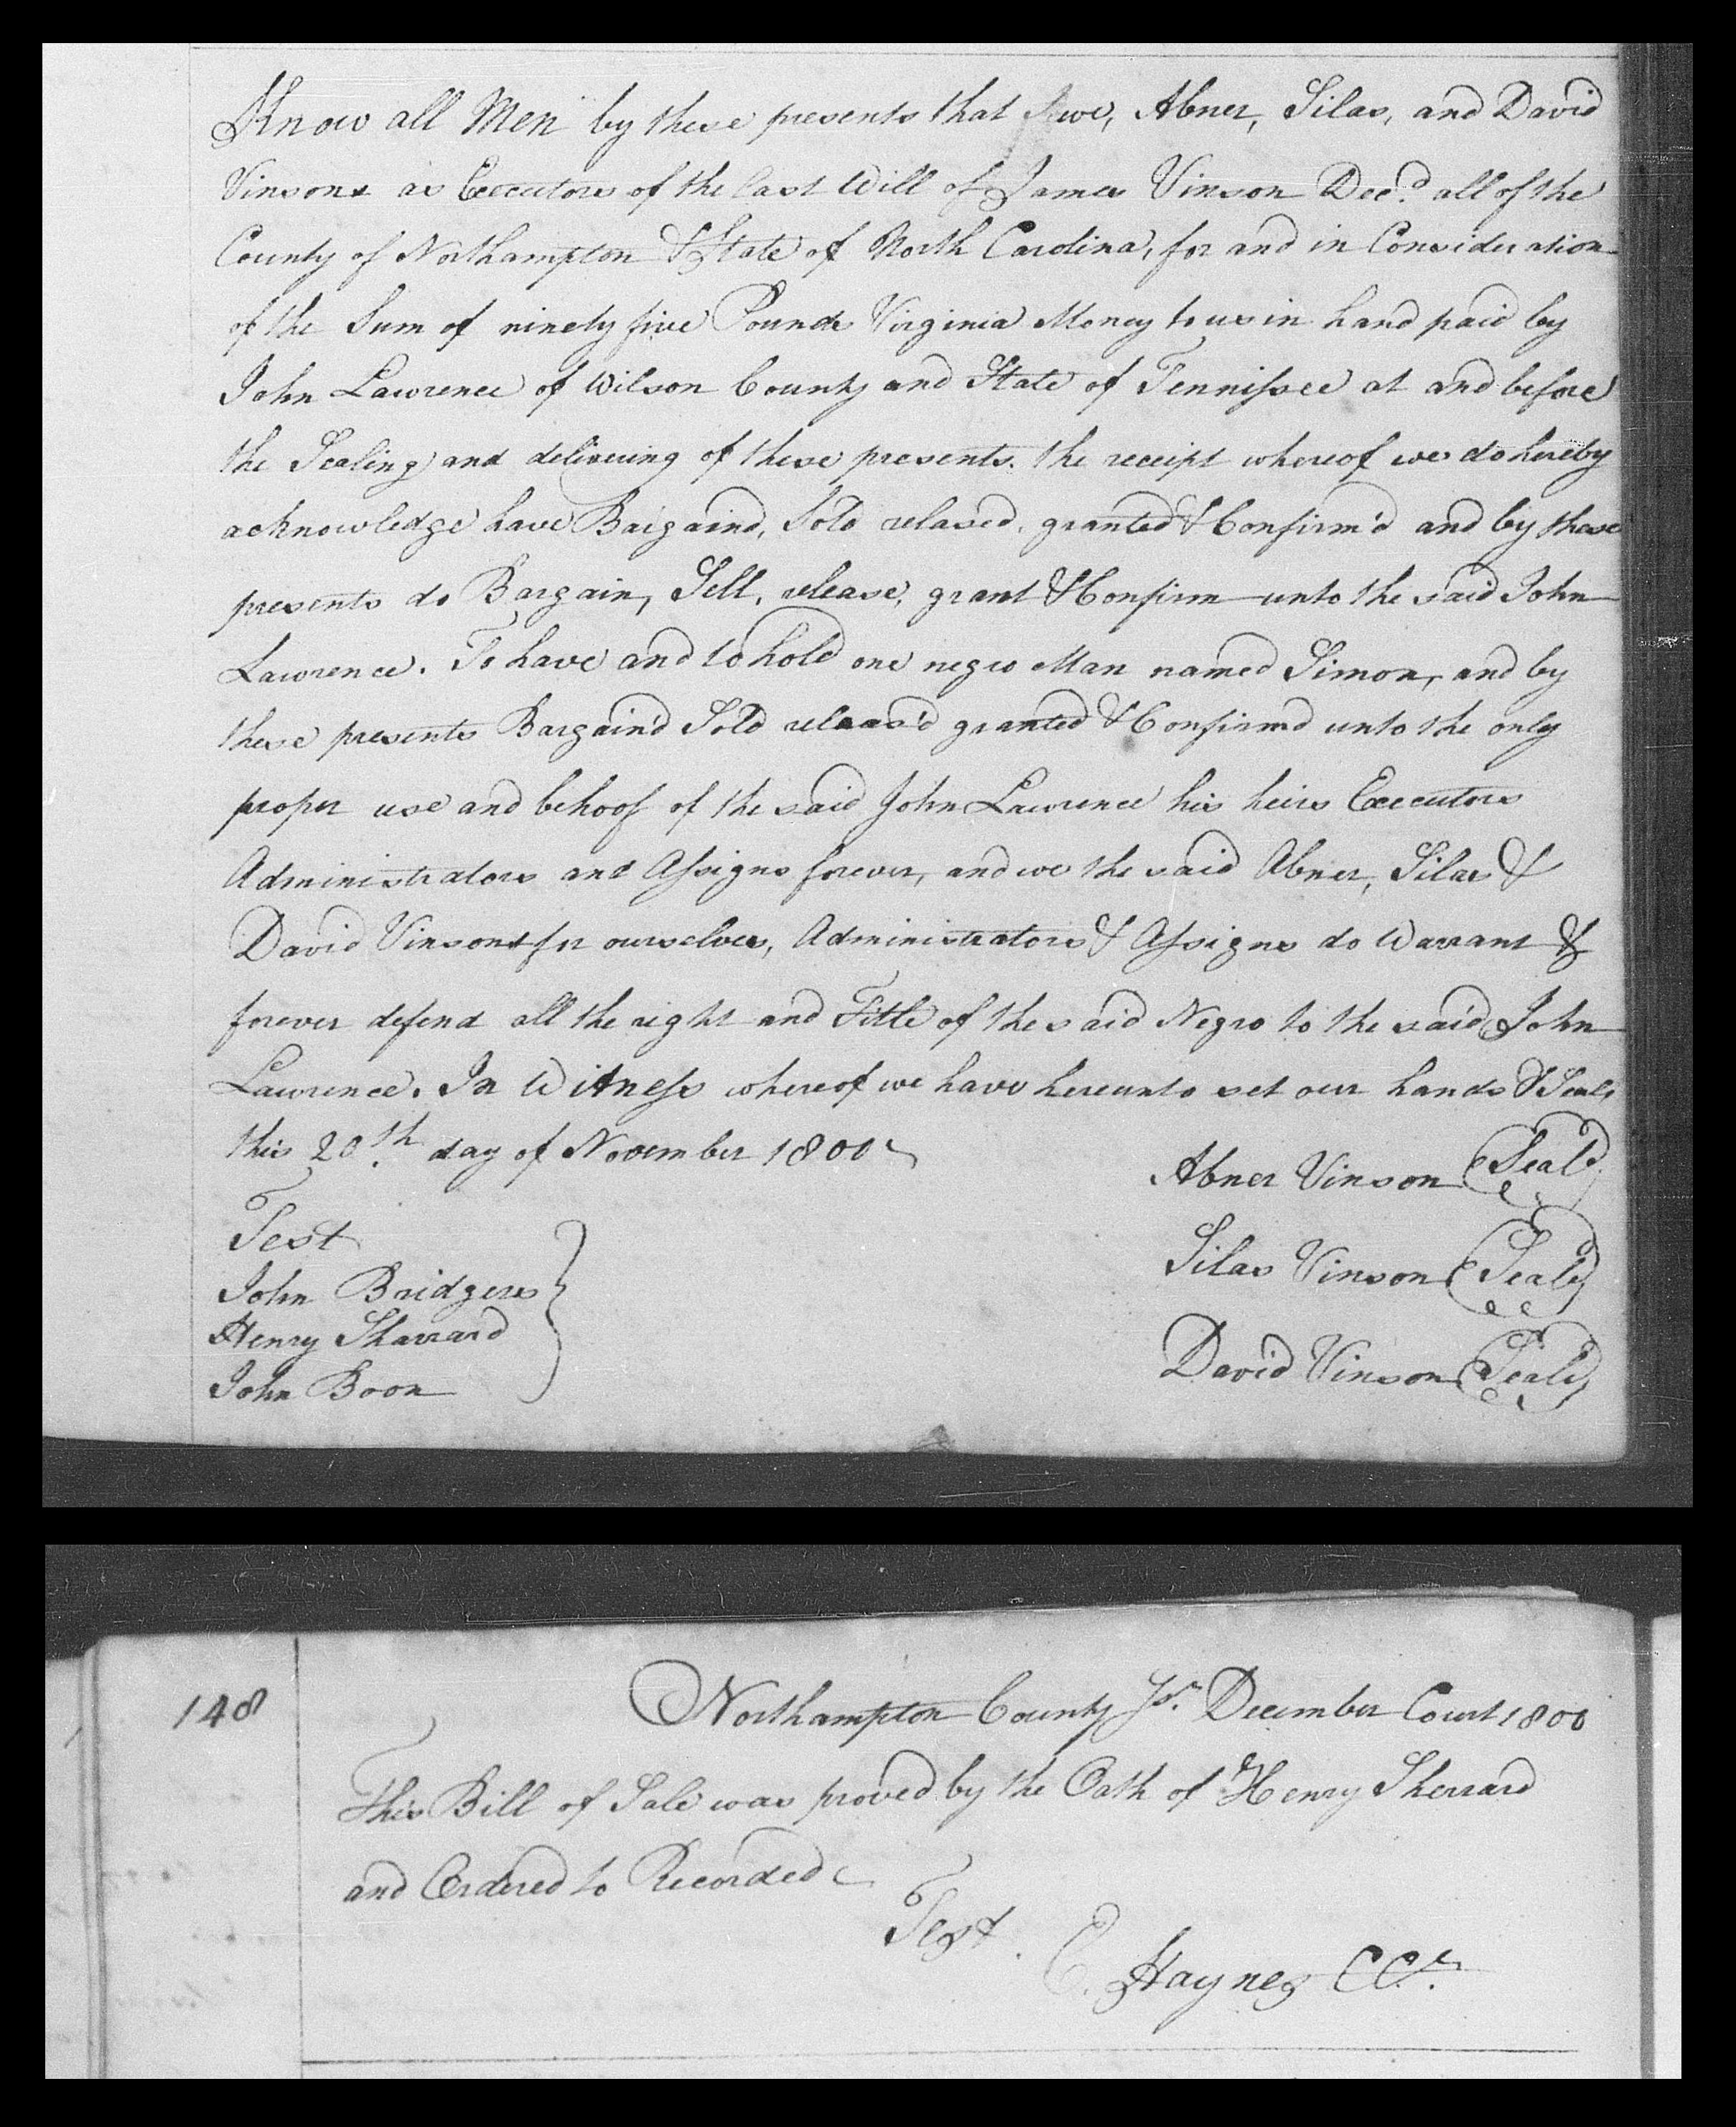 Know all Men by these presents that we, Abner, Silas, and David
Vinsons as Executors of the Last Will of James Vinson Decd. all of the
County of Northampton & State of North Carolina, for and in Consideration
of the Sum of ninety five Pounds Virginia Money to us in hand paid by
John Lawrence of Wilson County and State of Tennissee at and before
the Sealing and delivering of these presents. the receipt whereof we do hereby
acknowledge have Bargaind, Sold relased, granted & Confirm'd and by these
presents do Bargain, Sell, release, grant & Confirm unto the said John
Lawrence. To have and to hold one negro Man named Simon, and by
these presents Bargain'd Sold releas'd granted & Confirmd unto the only
proper use and behoof of the said John Lawrence his heirs Executors
Administrators and Assigns forever, and we the said Abner, Silas &
David Vinsons for ourselves, Administrators & Assigns do Warrant &
forever defend all the right and Title of the said Negro to the said John
Lawrence. In Witness whereof we have hereunto set our hands & Seals
this 20th. day of November 1800
Abner Vinson (Seal)
Test
Silas Vinson (Seal)
John Bridgers
Henry Sharrard
David Vinson (Seal)
John Boon
148
Northampton County Ss. December Court 1800
This Bill of Sale was proved by the Oath of Henry Sherrard
and Ordered to Recorded
Test.
E. Haynes CCk.